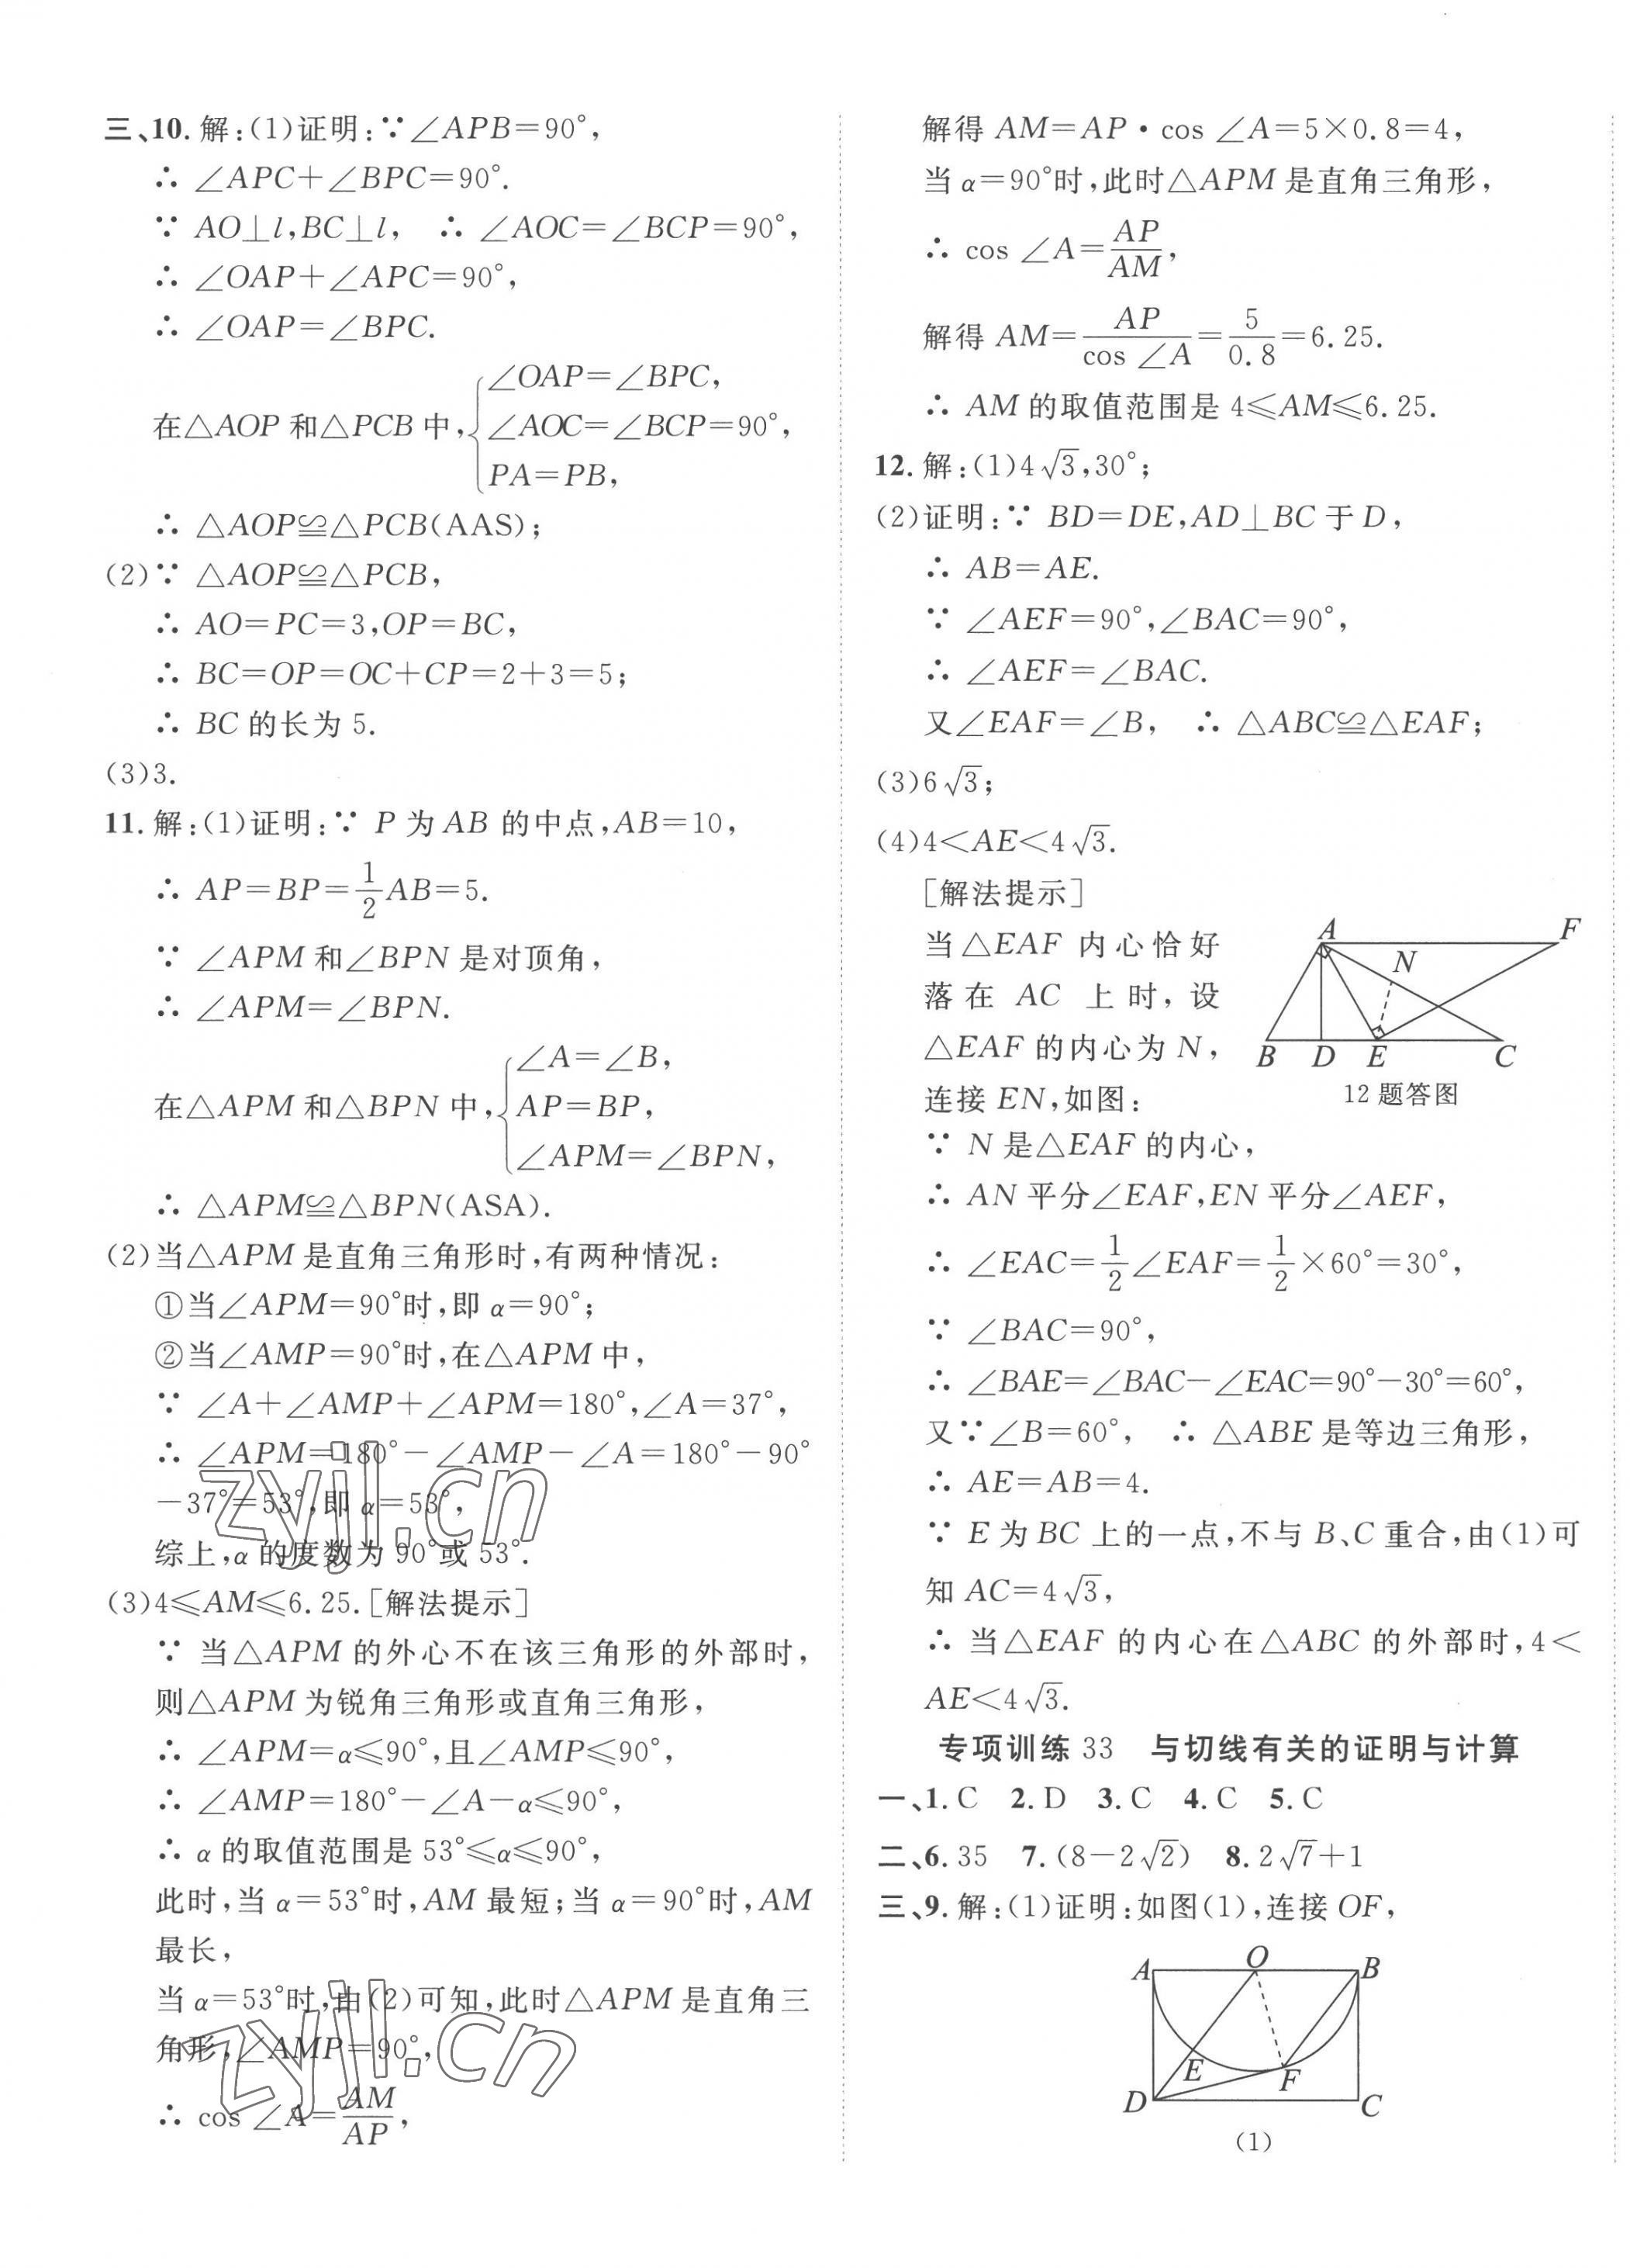 三、10. 解:(1)证明:∵∠APB=90°,
∴ ∠APC+∠BPC=90°.
∵ AO⊥l,BC⊥l, ∴ ∠AOC=∠BCP=90°,
∴ ∠OAP+∠APC=90°,
∴ ∠OAP=∠BPC.
∠OAP=∠BPC,
在△AOP 和△PCB 中,{∠AOC=∠BCP=90°,
PA=PB,
∴ △AOP≌△PCB(AAS);
(2)∵ △AOP≌△PCB,
∴ AO=PC=3,OP=BC,
∴ BC=OP=OC+CP=2+3=5;
∴ BC 的长为 5.
(3)3.
11. 解:(1)证明:∵ P 为 AB 的中点,AB=10,
∴ AP=BP=1/2 AB=5.
∵ ∠APM 和∠BPN 是对顶角,
∴ ∠APM=∠BPN.
∠A=∠B,
在△APM 和△BPN 中,{AP=BP,
∠APM=∠BPN,
∴ △APM≌△BPN(ASA).
(2)当△APM 是直角三角形时,有两种情况:
①当∠APM=90°时,即 α=90°;
②当∠AMP=90°时,在△APM 中,
∵ ∠A+∠AMP+∠APM=180°,∠A=37°,
∴ ∠APM=180°-∠AMP-∠A=180°-90°
-37°=53°,即 α=53°,
综上,α 的度数为 90°或 53°.
(3)4≤AM≤6.25.[解法提示]
∵ 当△APM 的外心不在该三角形的外部时,
则△APM 为锐角三角形或直角三角形,
∴ ∠APM=α≤90°,且∠AMP≤90°,
∴ ∠AMP=180°-∠A-α≤90°,
∴ α 的取值范围是 53°≤α≤90°,
此时,当 α=53°时,AM 最短;当 α=90°时,AM
最长,
当 α=53°时,由(2)可知,此时△APM 是直角三
角形,∠AMP=90°,
∴ cos ∠A=AM/AP,
zyjl.cn
zyjl.cn
解得 AM=AP·cos ∠A=5×0.8=4,
当 α=90°时,此时△APM 是直角三角形,
∴ cos ∠A=AP/AM,
解得 AM=AP/cos ∠A=5/0.8=6.25.
∴ AM 的取值范围是 4≤AM≤6.25.
12. 解:(1)4√3,30°;
(2)证明:∵ BD=DE,AD⊥BC 于 D,
∴ AB=AE.
∵ ∠AEF=90°,∠BAC=90°,
∴ ∠AEF=∠BAC.
又∠EAF=∠B, ∴ △ABC≌△EAF;
(3)6√3;
(4)4<AE<4√3.
[解法提示]
当△EAF 内心恰好
落在 AC 上时,设
△EAF 的内心为 N,
连接 EN,如图:
A F
N
B D E C
12题答图
∵ N 是△EAF 的内心,
∴ AN 平分∠EAF,EN 平分∠AEF,
∴ ∠EAC=1/2∠EAF=1/2×60°=30°,
∵ ∠BAC=90°,
∴ ∠BAE=∠BAC-∠EAC=90°-30°=60°,
又∵∠B=60°, ∴ △ABE 是等边三角形,
∴ AE=AB=4.
∵ E 为 BC 上的一点,不与 B、C 重合,由(1)可
知 AC=4√3,
∴ 当△EAF 的内心在△ABC 的外部时,4<
AE<4√3.
专项训练 33 与切线有关的证明与计算
一、1. C 2. D 3. C 4. C 5. C
二、6. 35 7. (8-2√2) 8. 2√7+1
三、9. 解:(1)证明:如图(1),连接 OF,
A O B
E F
D C
(1)